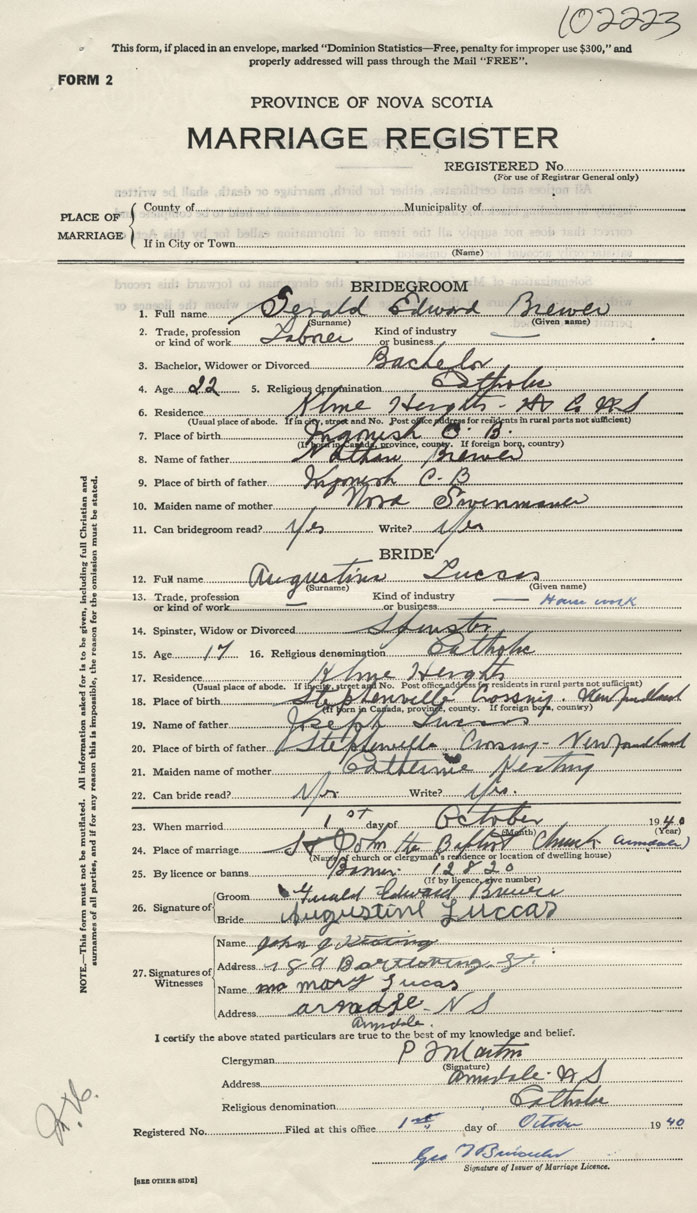 102223
This form, if placed in an envelope, marked "Dominion Statistics—Free, penalty for improper use $300," and
properly addressed will pass through the Mail "FREE".
FORM 2
PROVINCE OF NOVA SCOTIA
MARRIAGE REGISTER
REGISTERED No.
(For use of Registrar General only)
PLACE OF MARRIAGE
County of Municipality of
If in City or Town
(Name)
BRIDEGROOM
1. Full name Gerald Edward Brewer
(Surname) (Given name)
2. Trade, profession or kind of work Labrer Kind of industry or business —
3. Bachelor, Widower or Divorced Bachelor
4. Age 22 5. Religious denomination Catholic
6. Residence Klme Heights - Hx Co N S
(Usual place of abode. If in city, street and No. Post office address for residents in rural parts not sufficient)
7. Place of birth Ingonish C. B.
(If born in Canada, province, county. If foreign born, country)
8. Name of father Nathan Brewer
9. Place of birth of father Ingonish C-B
10. Maiden name of mother Nora
11. Can bridegroom read? Yes Write? Yes
BRIDE
12. Full name Augustina Luccas
(Surname) (Given name)
13. Trade, profession or kind of work — Kind of industry or business — House work
14. Spinster, Widow or Divorced Spinster
15. Age 17 16. Religious denomination Catholic
17. Residence Klme Heights
(Usual place of abode. If in city, street and No. Post office address for residents in rural parts not sufficient)
18. Place of birth Stephenville Crossing. Newfoundland
(If born in Canada, province, county. If foreign born, country)
19. Name of father Joseph Luccas
20. Place of birth of father Stephenville Crossing - Newfoundland
21. Maiden name of mother Catherine Keating
22. Can bride read? Yes Write? Yes.
23. When married 1st day of October 1940
(Month) (Year)
24. Place of marriage St John the Baptist Church Armdale
(Name of church or clergyman's residence or location of dwelling house)
25. By licence or banns Banns 12820
(If by licence, give number)
26. Signature of
Groom Gerald Edward Brewer
Bride Augustine Luccas
27. Signatures of Witnesses
Name John J Keating
Address 189 St.
Name mary Lucas
Address armdle N S
Armdale.
I certify the above stated particulars are true to the best of my knowledge and belief.
Clergyman P Martin
(Signature)
Address Armdale N S
Religious denomination Catholic
Registered No. Filed at this office 1st day of October 1940
Geo
Signature of Issuer of Marriage Licence.
[SEE OTHER SIDE]
NOTE.—This form must not be mutilated. All information asked for is to be given, including full Christian and
surnames of all parties, and if for any reason this is impossible, the reason for the omission must be stated.